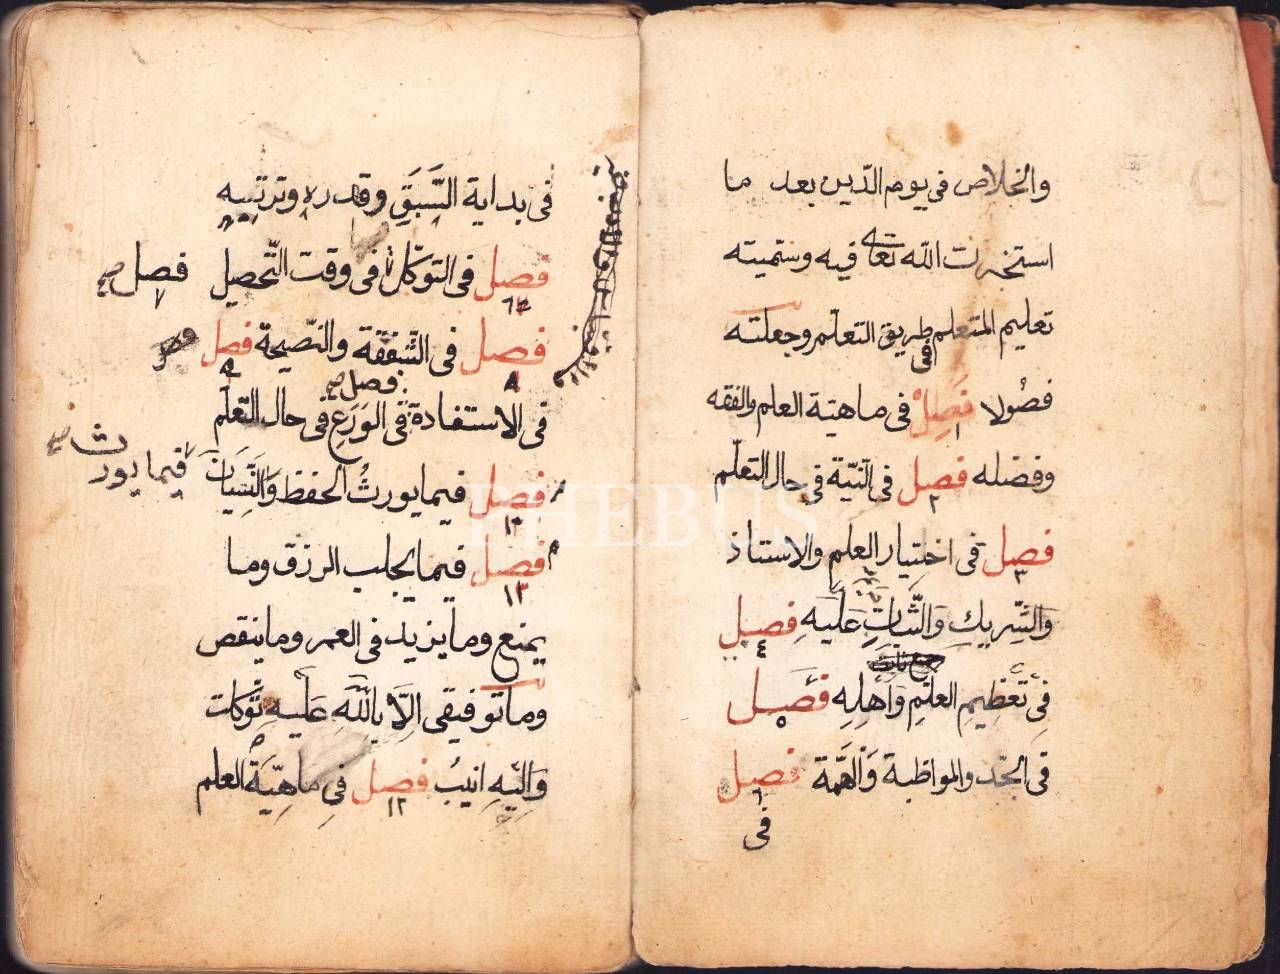 والخلاص في يوم الدّين بعد ما
استخرت الله تعالى فيه وسمّيته
تعليم المتعلم طريق التعلّم وجعلته
في
فصُولا فَصِلْ في ماهيّة العلم والفقه
١
وفضله فصل في النّية في حال التعلّم
٢
فصل في اختيار العلم والاستاذ
٣
وَالشَّرِيكِ وَالثَّبَاتِ عَلَيْهِ فصل
٤
فِي تَعْظِيمِ العِلْمِ وَاَهْلِهِ فصل
٥
في الجّد والمواظبة وَالْهَمَّة فصل
٦
في
في بداية السَّبَقِ وقدره وترتيبه
فصل في التوكّل في وقت التّحصيل فصل صح
٧
فصل في الشّفقة والنّصيحة فصل
٨ ٩
فصل صح
في الاستفادة في الوَرَعِ في حال التعلّم
فصل فيما يورثُ الحفظ وَالنِّسْيَانَ فيما يورث صح
١٢
فصل فيما يجلب الرزق وما
١٣
يمنع وما يزيد في العمر وما ينقص
وما توفيقى اِلَّا بِاللّٰهِ عَلَيْهِ تَوَكَّلت
وَاِلَيْهِ انيبُ فصل فِي مَاهِيَّةِ العلم
١٢
PHEBUS